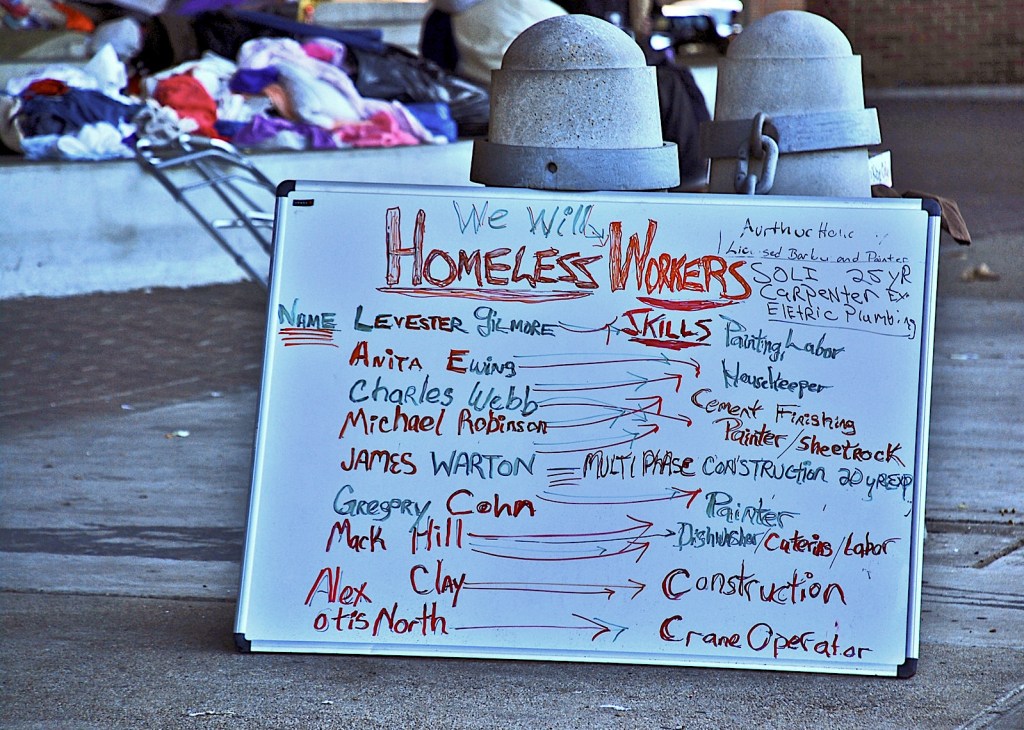 We Will
HOMELESS WORKERS
Licensed and Painter
SOLI 25 YR
Carpenter Ex.
Eletric Plumbing
NAME LEVESTER GILMORE SKILLS Painting, Labor
ANITA Ewing Housekeeper
Charles Webb Cement Finishing
Michael Robinson Painter/Sheetrock
JAMES WARTON MULTI PHASE CONSTRUCTION 20 yr EXP
Gregory Cohn Painter
Mack Hill Dishwasher/Catering/Labor
Alex Clay Construction
Otis North Crane Operator